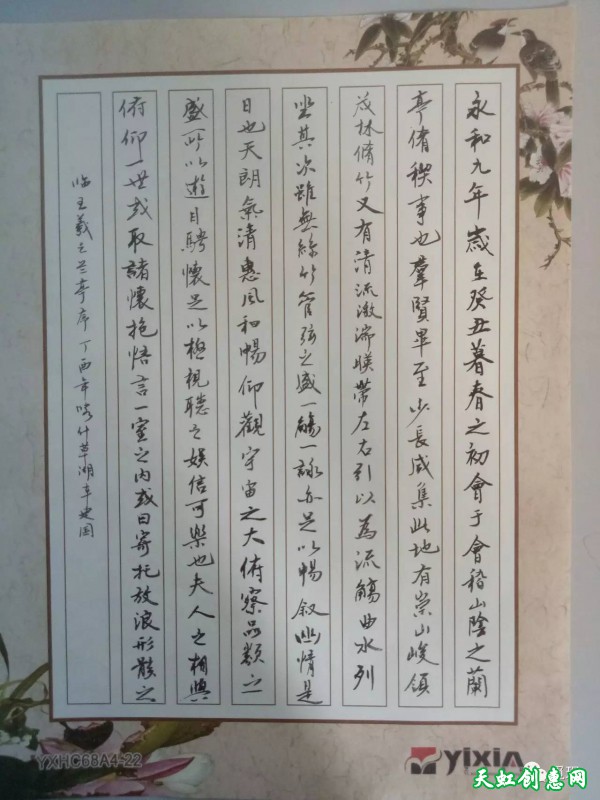 永和九年歲在癸丑暮春之初會于會稽山陰之蘭
亭脩稧事也羣賢畢至少長咸集此地有崇山峻領
茂林脩竹又有清流激湍暎帶左右引以為流觴曲水列
坐其次雖無絲竹管弦之盛一觴一詠亦足以暢叙幽情是
日也天朗氣清惠風和暢仰觀宇宙之大俯察品類之
盛所以遊目騁懷足以極視聽之娛信可樂也夫人之相與
俯仰一世或取諸懷抱悟言一室之內或因寄托放浪形骸之
临王羲之兰亭序丁酉年喀什草湖
YXHC68A4-22
yixin
天虹创惠网